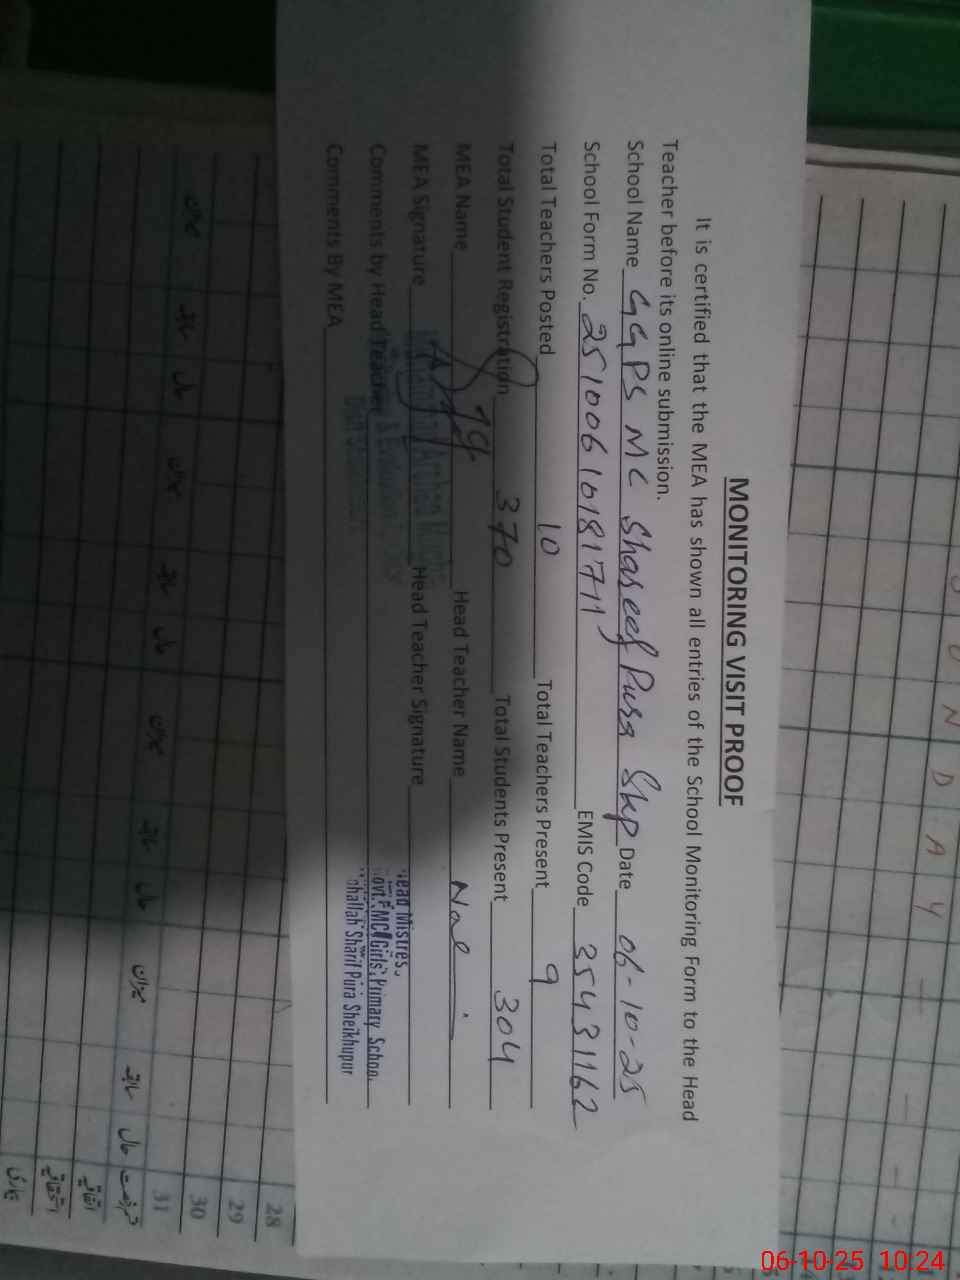 MONITORING VISIT PROOF
It is certified that the MEA has shown all entries of the School Monitoring Form to the Head
Teacher before its online submission.
School Name GGPS MC Shareef Pura Skp Date 06-10-25
School Form No. 25100610181711 EMIS Code 35431162
Total Teachers Posted 10 Total Teachers Present 9
Total Student Registration 370 Total Students Present 304
MEA Name Head Teacher Name
MEA Signature Head Teacher Signature
Comments by Head Teacher
Comments By MEA
ead Mistres.
ovt. MC Girls Primary School
ohallah Sharif Pura Sheikhupur
S U N D A Y
28
29
30
31
میزان سابقہ حال میزان سابقہ حال میزان سابقہ حال میزان سابقہ حال
06-10-25 10:24